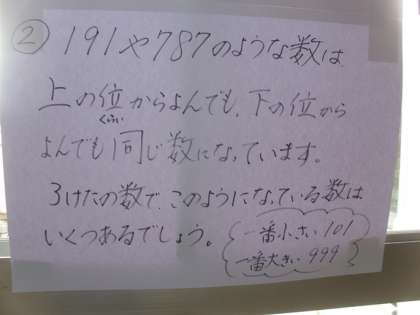 ② 191や787のような数は
上の位からよんでも、下の位から
くらい
よんでも同じ数になっています。
3けたの数で、このようになっている数は
いくつあるでしょう。
一番小さい 101
一番大きい 999